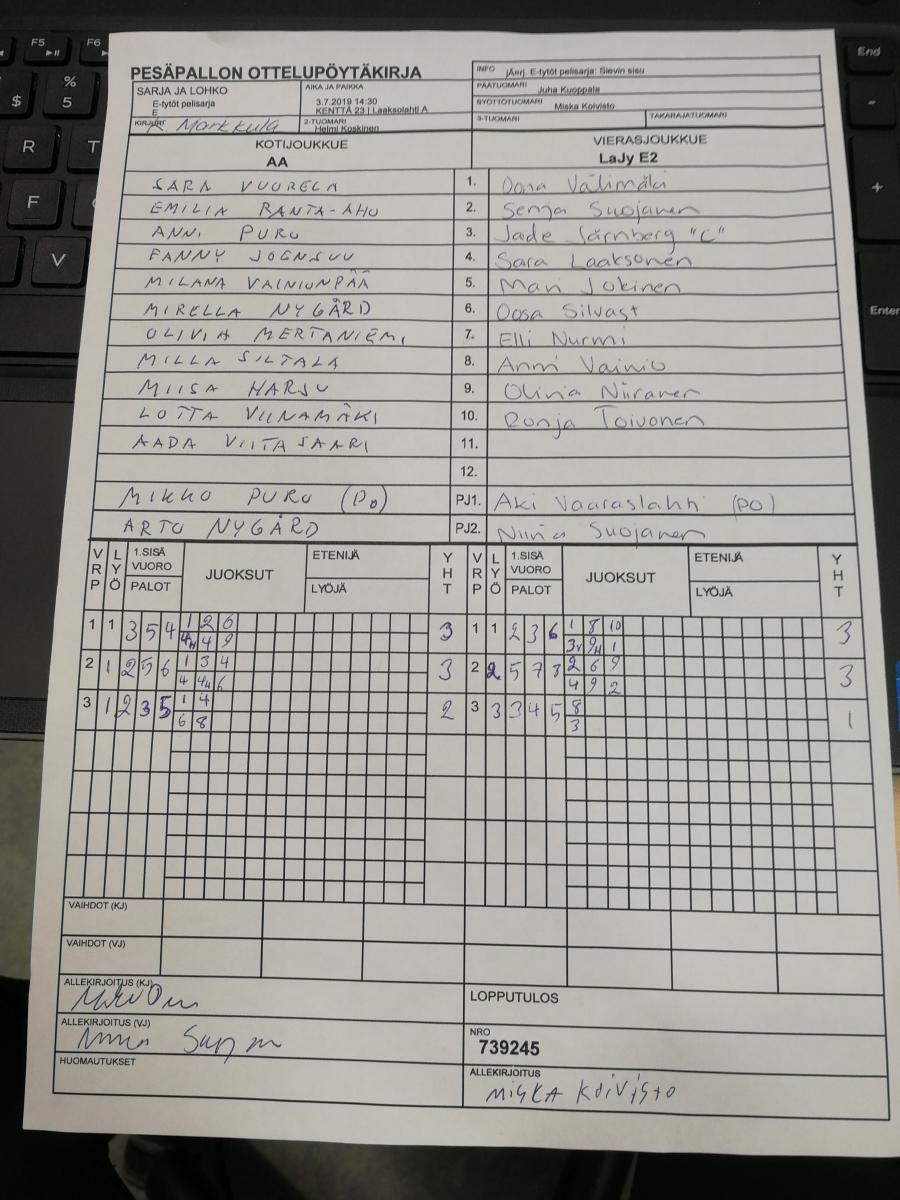 PESÄPALLON OTTELUPÖYTÄKIRJA
INFO jÄurj. E-tytöt pelisarja: Sievin sisu
SARJA JA LOHKO
E-tytöt pelisarja
E
AIKA JA PAIKKA
3.7.2019 14:30
KENTTÄ 23 | Laaksolahti A
PÄÄTUOMARI Juha Kuoppala
SYÖTTÖTUOMARI Miska Koivisto
KIRJURIT R. Markkula
2-TUOMARI
Helmi Koskinen
3-TUOMARI
TAKARAJATUOMARI
KOTIJOUKKUE
AA
VIERASJOUKKUE
LaJy E2
SARA VUORELA 1. Oona Välimäki
EMILIA RANTA-AHO 2. Senja Suojanen
ANNI PURO 3. Jade Järnberg "C"
FANNY JOENSUU 4. Sara Laaksonen
MILANA VAINIONPÄÄ 5. Mari Jokinen
MIRELLA NYGÅRD 6. Oosa Silvast
OLIVIA MERTANIEMI 7. Elli Nurmi
MILLA SILTALA 8. Anni Vainio
MIISA HARJU 9. Olivia Niiranen
LOTTA VIINAMÄKI 10. Ronja Toivonen
AADA VIITASAARI 11.
12.
MIKKO PURO (PO) PJ1. Aki Vaaraslahti (PO)
ARTO NYGÅRD PJ2. Niina Suojanen
VRP LYÖ 1.SISÄ VUORO PALOT JUOKSUT ETENIJÄ LYÖJÄ YHT VRP LYÖ 1.SISÄ VUORO PALOT JUOKSUT ETENIJÄ LYÖJÄ YHT
1 1 3 5 4 1 2 6 3 1 1 2 3 6 1 8 10 3
4H 4 9 3V 9H 1
2 1 2 5 6 1 3 4 3 2 2 5 7 8 2 6 9 3
4 4H 6 4 9 2
3 1 2 3 5 1 4 2 3 3 3 4 5 8 1
6 8 3
VAIHDOT (KJ)
VAIHDOT (VJ)
ALLEKIRJOITUS (KJ)
LOPPUTULOS
ALLEKIRJOITUS (VJ)
NRO
739245
HUOMAUTUKSET
ALLEKIRJOITUS
MISKA KOIVISTO
F5
F6
%
$
5
R
T
F
V
End
-
+
Enter